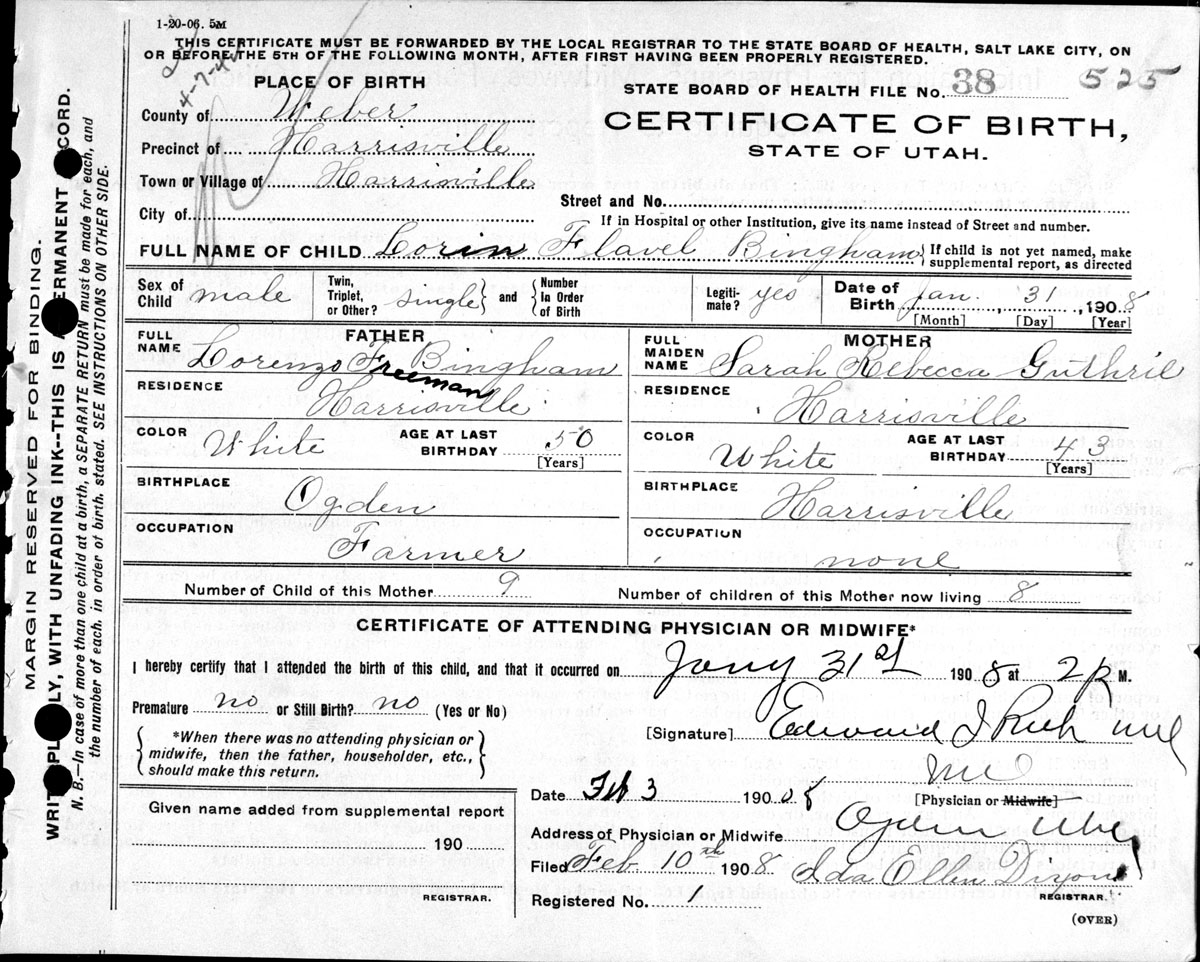 1-20-06. 5M
THIS CERTIFICATE MUST BE FORWARDED BY THE LOCAL REGISTRAR TO THE STATE BOARD OF HEALTH, SALT LAKE CITY, ON
OR BEFORE THE 5TH OF THE FOLLOWING MONTH, AFTER FIRST HAVING BEEN PROPERLY REGISTERED.
PLACE OF BIRTH
STATE BOARD OF HEALTH FILE No. 38 525
County of Weber
CERTIFICATE OF BIRTH,
STATE OF UTAH.
Precinct of Harrisville
Town or Village of Harrisville
City of
Street and No.
If in Hospital or other Institution, give its name instead of Street and number.
FULL NAME OF CHILD Lorin Flavel Bingham { If child is not yet named, make
supplemental report, as directed
Sex of Child male Twin, Triplet, or Other? single } and { Number In Order of Birth Legiti-mate? yes Date of Birth Jan. 31, 1908
[Month] [Day] [Year]
FATHER MOTHER
FULL NAME Lorenzo Freeman Bingham FULL MAIDEN NAME Sarah Rebecca Guthril
RESIDENCE Harrisville RESIDENCE Harrisville
COLOR White AGE AT LAST BIRTHDAY 50 [Years] COLOR White AGE AT LAST BIRTHDAY 43 [Years]
BIRTHPLACE Ogden BIRTHPLACE Harrisville
OCCUPATION Farmer OCCUPATION none
Number of Child of this Mother 9 Number of children of this Mother now living 8
CERTIFICATE OF ATTENDING PHYSICIAN OR MIDWIFE*
I hereby certify that I attended the birth of this child, and that it occurred on Jany 31st 1908 at 2 p M.
Premature no or Still Birth? no (Yes or No)
[Signature] Edward I Rich
{ *When there was no attending physician or
midwife, then the father, householder, etc.,
should make this return. }
Date Feb 3 1908 [Physician or Midwife]
Given name added from supplemental report
190
REGISTRAR.
Address of Physician or Midwife Ogden Utah
Filed Feb. 10th 1908 Ida Ellen Dixon
Registered No. 1 REGISTRAR.
(OVER)
MARGIN RESERVED FOR BINDING.
WRITE PLAINLY, WITH UNFADING INK--THIS IS A PERMANENT RECORD.
N. B.—In case of more than one child at a birth, a SEPARATE RETURN must be made for each, and
the number of each, in order of birth, stated. SEE INSTRUCTIONS ON OTHER SIDE.